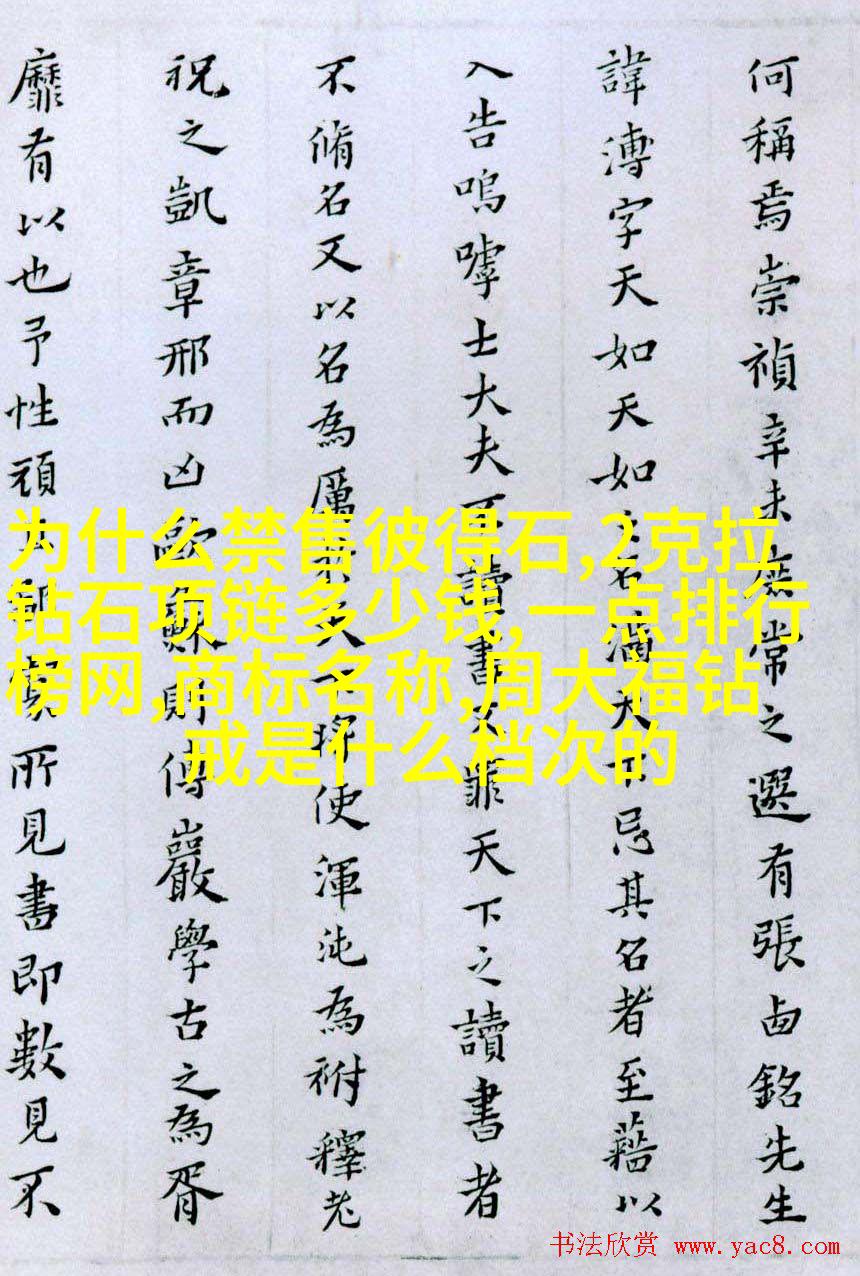 何稱焉崇禎辛未庶常之選有張卣銘先生
諱溥字天如天如之名滿天下忌其名者至藉以
入告嗚嘑士大夫不讀書之罪天下之讀書者
不脩名又以名為厲將使渾沌為祔釋老
祝之凱章邢而凶歐蘇則傅巖學古之為胥
靡有以也予性頑所見書即數見不
为什么禁售彼得石,2克拉
钻石项链多少钱,一点排行
榜网,商标名称,周大福钻
戒是什么档次的
书法欣赏 www.yac8.com